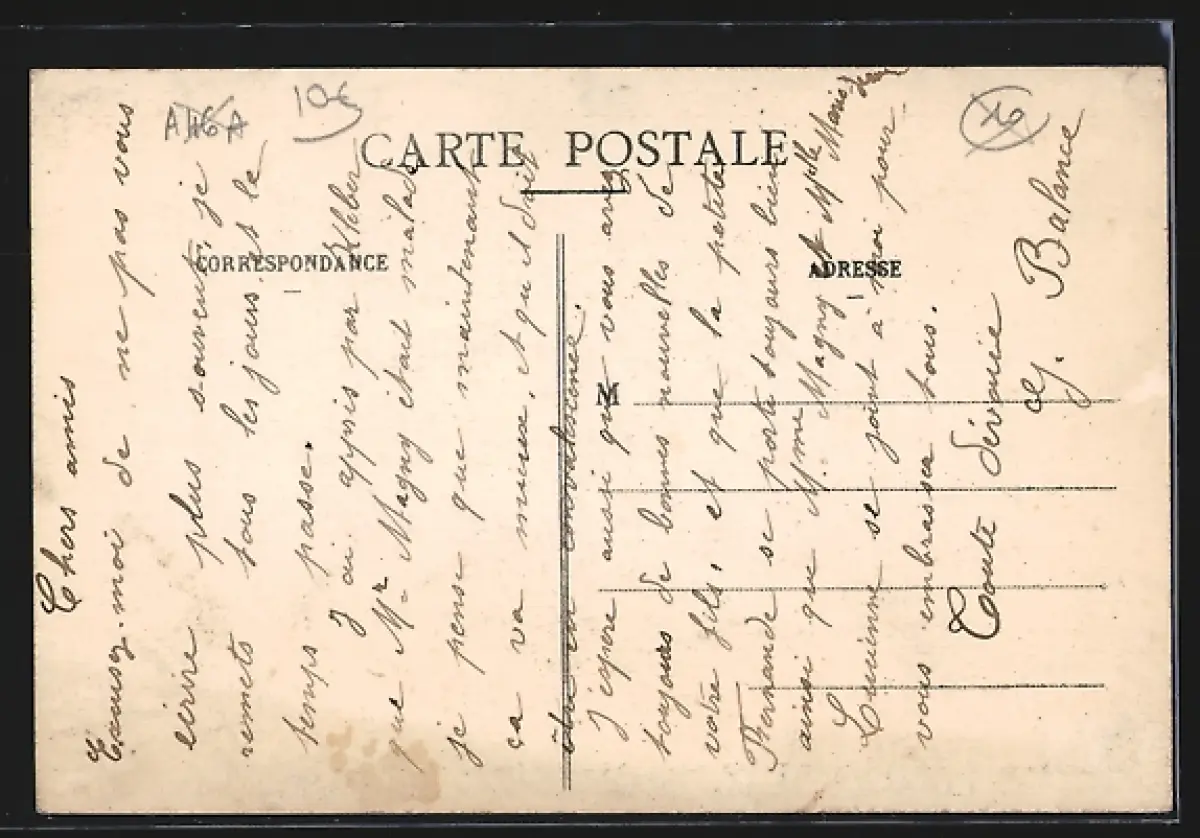 CARTE POSTALE
CORRESPONDANCE
ADRESSE
M
10€
Chers amis
Excusez-moi de ne pas vous
écrire plus souvent, je
remets tous les jours, et le
temps passe.
J'ai appris par Kleber
que Mr Magny était malade
je pense que maintenant
ça va mieux, et qu'il doit
être en convalescence.
J'espère aussi que vous avez
toujours de bonnes nouvelles de
votre fils, et que la petite
Fernande se porte toujours bien
ainsi que Mme Magny et Mlle Marie
se joint à moi pour
vous embrasser tous.
Toute dévouée
Balance